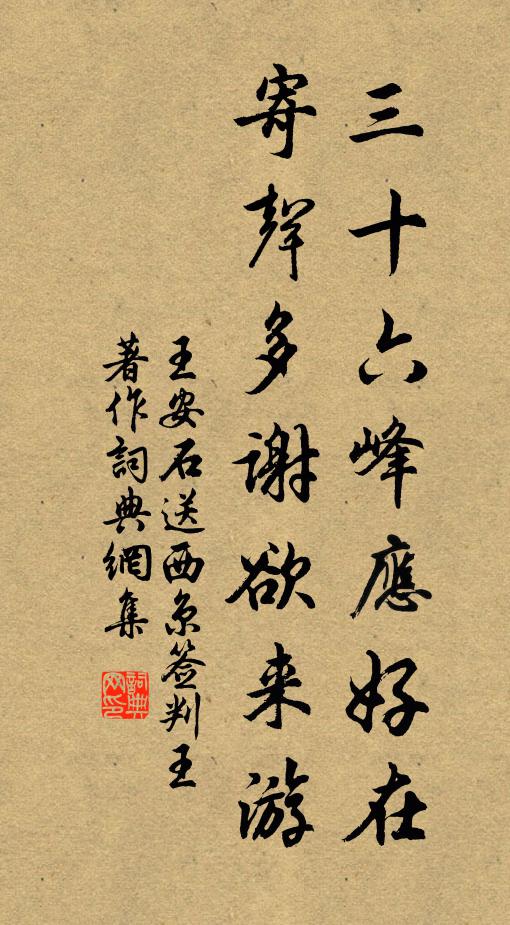 三十六峰應好在
寄聲多謝欲来游
王安石送西京签判王
著作詞典網集
詞典网印